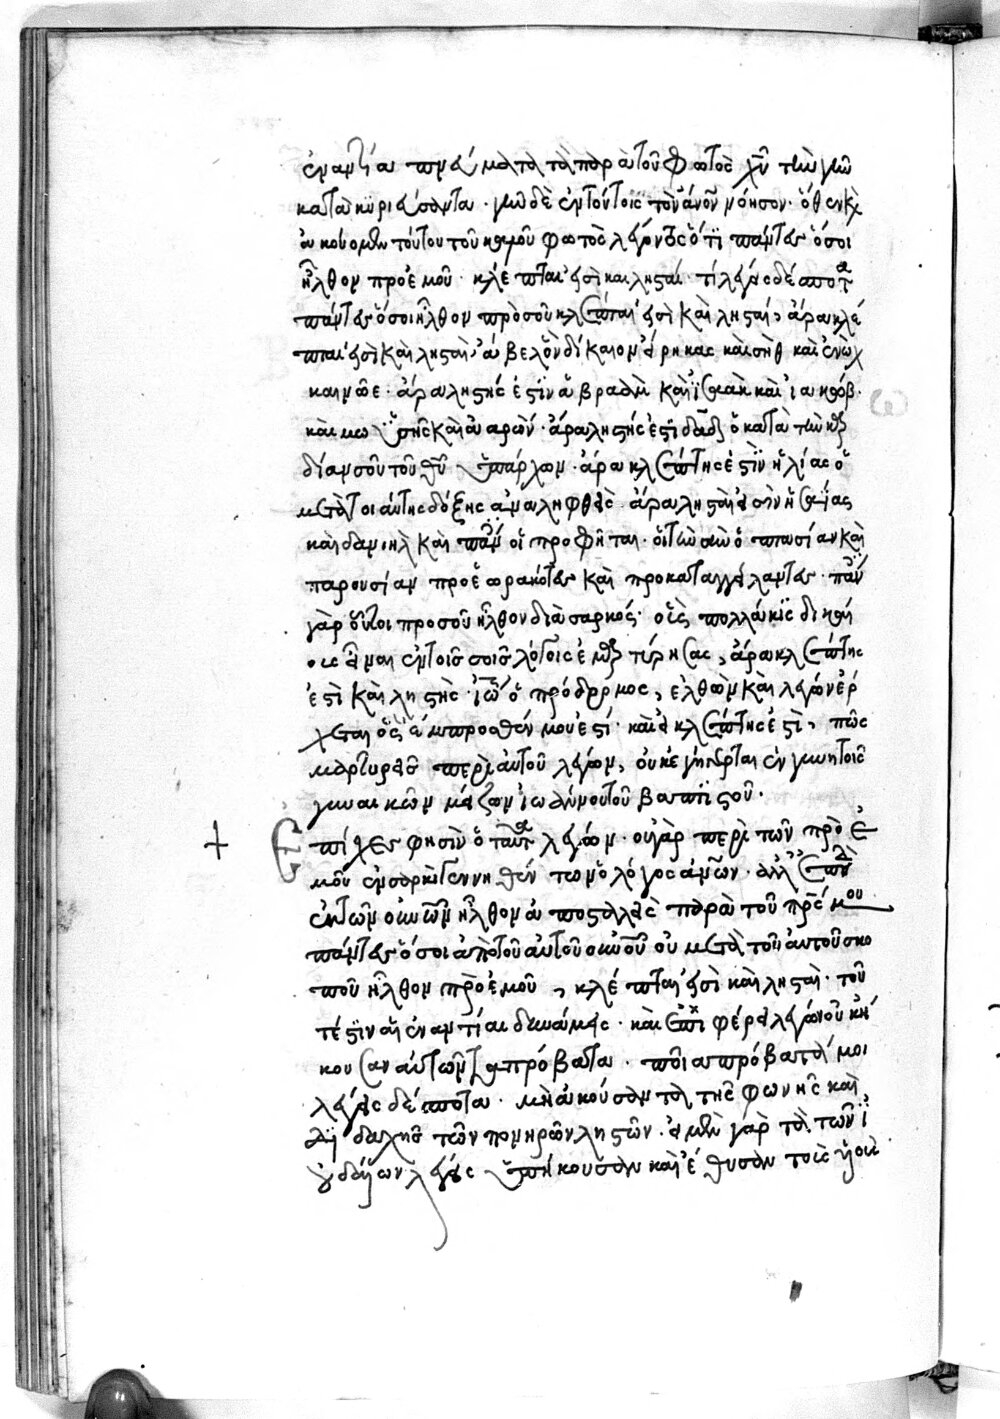 ἐναντία πνεύματα τὰ παρὰ τοῦ φωτὸς χῦ τὴν γῆν
κατακυριεύσαντα· γῆν δὲ ἐν τούτοις τὸν ἄνον νόησον· ὅθεν καὶ
ἀκούομεν τούτου τοῦ φωτὸς λέγοντος ὅτι πάντες ὅσοι
ἦλθον προ ἐμοῦ· κλέπται εἰσὶ και λησταί· τί λέγεις δέσποτα
πάντες ὅσοι ἦλθον πρὸ σοῦ κλέπται εἰσὶ καὶ λησταὶ, ἄρα κλέ
πται εἰσὶ καὶ λησταὶ, ἄβελ ὃν δίκαιον εἴρηκας καὶ σὴθ καὶ ἐνὼχ
και νῶε· ἄρα ληστής ἐστιν ἀβραὰμ καὶ ἰσαὰκ καὶ ἰακώβ·
καὶ μωϋσῆς καὶ ἀαρών· ἄρα ληστής ἐστι δαδ ὁ κατὰ τὴν καρ
δίαν σου τοῦ θῦ ὑπάρχων· ἄρα κλέπτης ἐστιν ἠλίας ὁ
μετὰ τοιαύτης δόξης ἀναληφθεὶς· ἄρα λησταὶ εἰσὶν ἡσαΐας
καὶ δανιὴλ καὶ πάντες οἱ προφῆται· οἱ τὴν σὴν ὁπτασίαν καὶ
παρουσίαν προεωρακότες καὶ προκαταγγείλαντες· πάντες
γὰρ οὗτοι προ σοῦ ἦλθον διὰ σαρκός· οἷς πολλάκις
ἐν τοῖς σοῖς λόγοις, ἄρα κλέπτης
ἐστὶ καὶ ληστὴς· ἰω ὁ πρόδρομος, ἐλθὼν καὶ λέγων ἔρ
χεται ὃς ἔμπροσθέν μου ἐστί· καὶ εἰ κλέπτης ἐστὶ, πῶς
μαρτυρεῖς περὶ αὐτοῦ λέγων, οὐκ ἐγήγερται ἐν γεννητοῖς
γυναικῶν μείζων ἰωάννου τοῦ βαπτιστοῦ·
Ἐπίσχες φησὶν ὁ ταῦτα λέγων· οὐ γὰρ περὶ τῶν πρὸ ἐ
μοῦ ἐν σαρκὶ γεννηθέντων ὁ λόγος ἀμῶν· ἀλλ' ἐπεὶ
ἐκ τῶν οὐνῶν ἦλθον ἀποσταλεὶς παρὰ τοῦ πρς μου
πάντες ὅσοι ἀπὸ τοῦ αὐτοῦ οὐνοῦ οὐ μετὰ τοῦ αὐτοῦ σκο
ποῦ ἦλθον πρὸ ἐμοῦ, κλέπται εἰσὶ καὶ λησταὶ· τοῦ
τέστιν αἱ ἐναντίαι δυνάμεις· καὶ ἐπιφέρει λέγων οὐκ ἤ
κουσαν αὐτῶν τὰ πρόβατα· ποῖα πρόβατα μοι
λέγεις δέσποτα· μὴ ἀκούσαντα τῆς φωνῆς καὶ
διδαχῆς τῶν πονηρῶν ληστῶν· εἰ μὲν γὰρ τὰ τῶν ἰ
ουδαίων λέγεις ὑπήκουσαν καὶ ἔθυσαν τοῖς